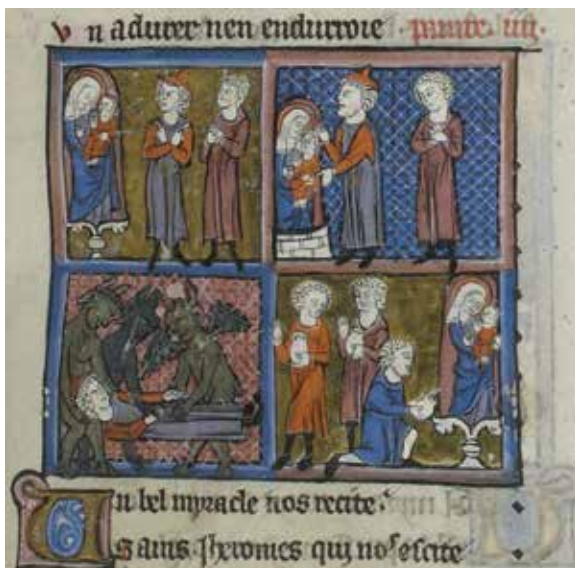 V n adurer nen endurroie
Un bel myracle nos recite
Sains Jheromes qui nos escite